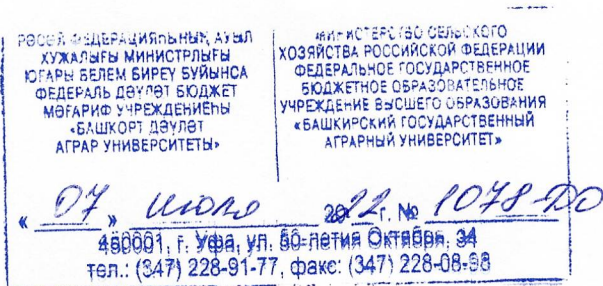 РӘСӘЙ ФЕДЕРАЦИЯҺЫНЫҢ АУЫЛ
ХУЖАЛЫҒЫ МИНИСТРЛЫҒЫ
ЮҒАРЫ БЕЛЕМ БИРЕҮ БУЙЫНСА
ФЕДЕРАЛЬ ДӘҮЛӘТ БЮДЖЕТ
МӘҒАРИФ УЧРЕЖДЕНИЕҺЫ
«БАШҠОРТ ДӘҮЛӘТ
АГРАР УНИВЕРСИТЕТЫ»
МИНИСТЕРСТВО СЕЛЬСКОГО
ХОЗЯЙСТВА РОССИЙСКОЙ ФЕДЕРАЦИИ
ФЕДЕРАЛЬНОЕ ГОСУДАРСТВЕННОЕ
БЮДЖЕТНОЕ ОБРАЗОВАТЕЛЬНОЕ
УЧРЕЖДЕНИЕ ВЫСШЕГО ОБРАЗОВАНИЯ
«БАШКИРСКИЙ ГОСУДАРСТВЕННЫЙ
АГРАРНЫЙ УНИВЕРСИТЕТ»
« 07 » июля 2022 г. № 1078-ДО
450001, г. Уфа, ул. 50-летия Октября, 34
тел.: (347) 228-91-77, факс: (347) 228-08-98